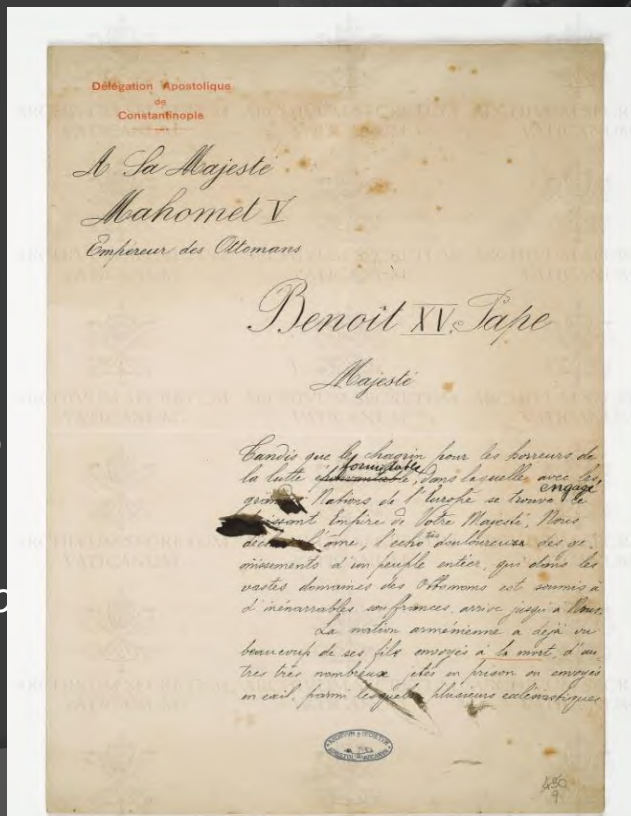 Délégation Apostolique
de
Constantinople
A Sa Majesté
Mahomet V
Empereur des Ottomans
Benoît XV, Pape
Majesté
Tandis que le chagrin pour les horreurs de
la lutte formidable, dans laquelle avec les
Nations de l'Europe se trouve engagé ce
puissant Empire de Votre Majesté, Nous
l'âme, l'echo très douloureux des gé
missements d'un peuple entier, qui dans les
vastes domaines des Ottomans est soumis à
d'inénarrables souffrances, arrive jusqu'à Nous.
La nation arménienne a déjà vu
beaucoup de ses fils envoyés à la mort, d'au
tres très nombreux jetés en prison ou envoyés
en exil, parmi lesquels plusieurs ecclésiastiques